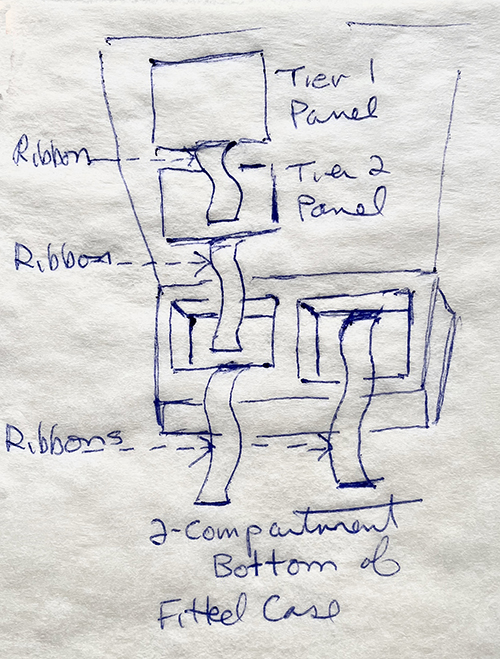 Tier 1
Panel
Ribbon
Tier 2
Panel
Ribbon
Ribbons
2-Compartment
Bottom of
Fitted Case